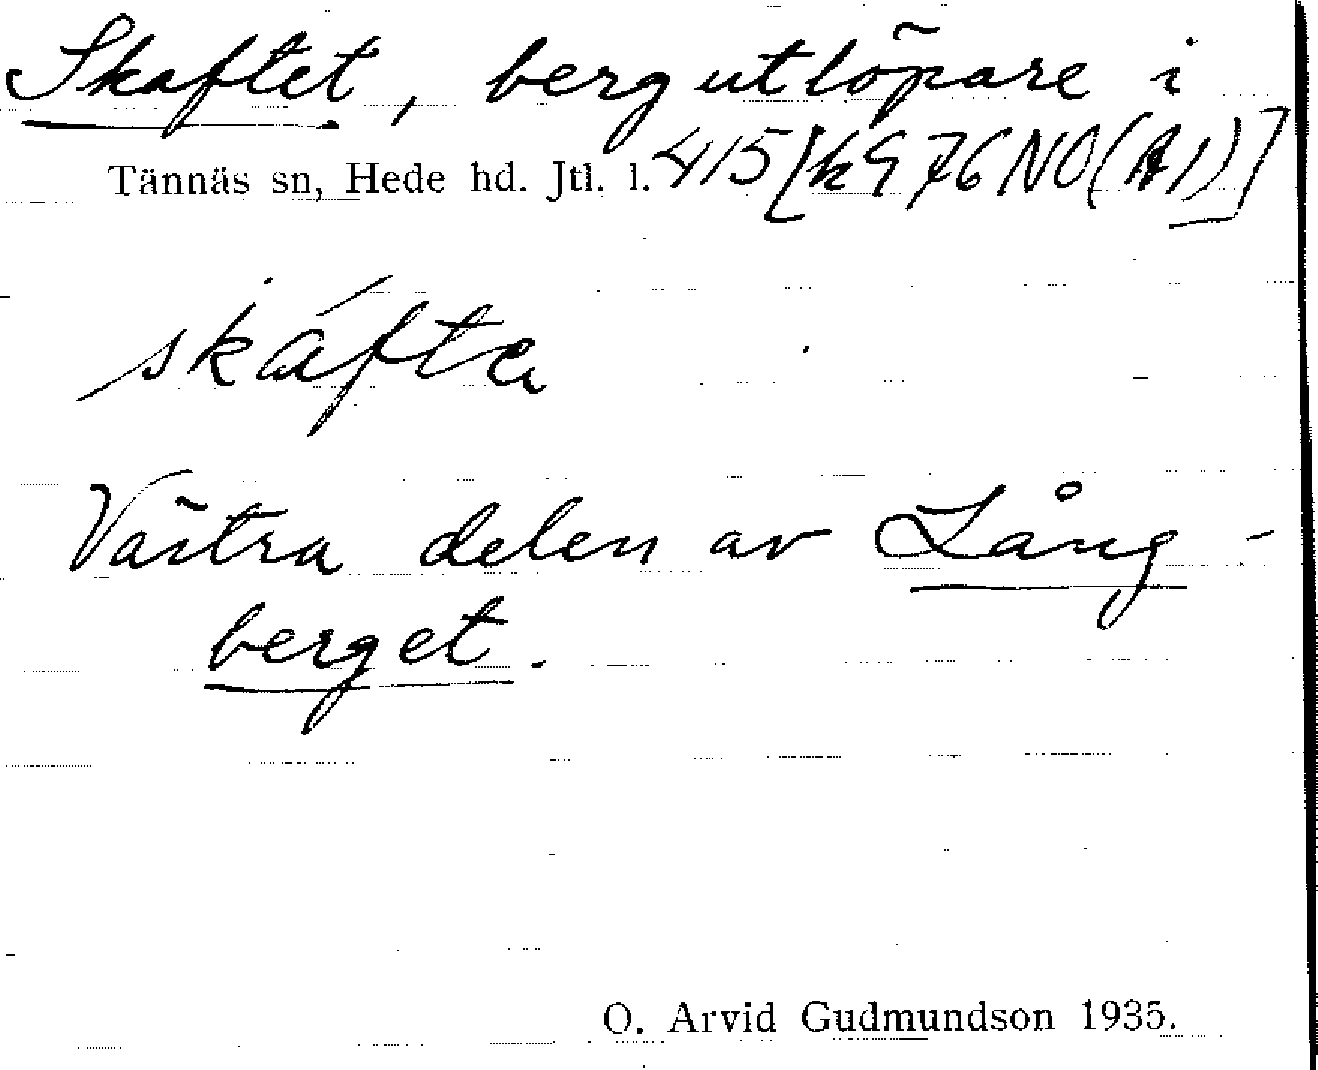 Skaftet, bergutlöpare i
Tännäs sn, Hede hd. Jtl. l. 415 [k 976 NO (A1)]
skáfte
Västra delen av Lång-
berget.
O. Arvid Gudmundson 1935.